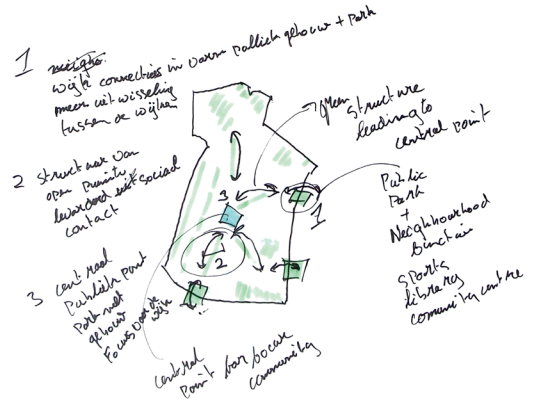 1
wijk connecties in vorm publiek gebouw + park
meer uitwisseling
tussen de wijken
2 structuur van
open ruimte
social
contact
3 centraal
publiek punt
park met
gebouw
focus van de
wijk
green structure
leading to
central point
3
1
2
Public
Park
+
Neighbourhood
function
sports
library
comunity centre
central
point for
community